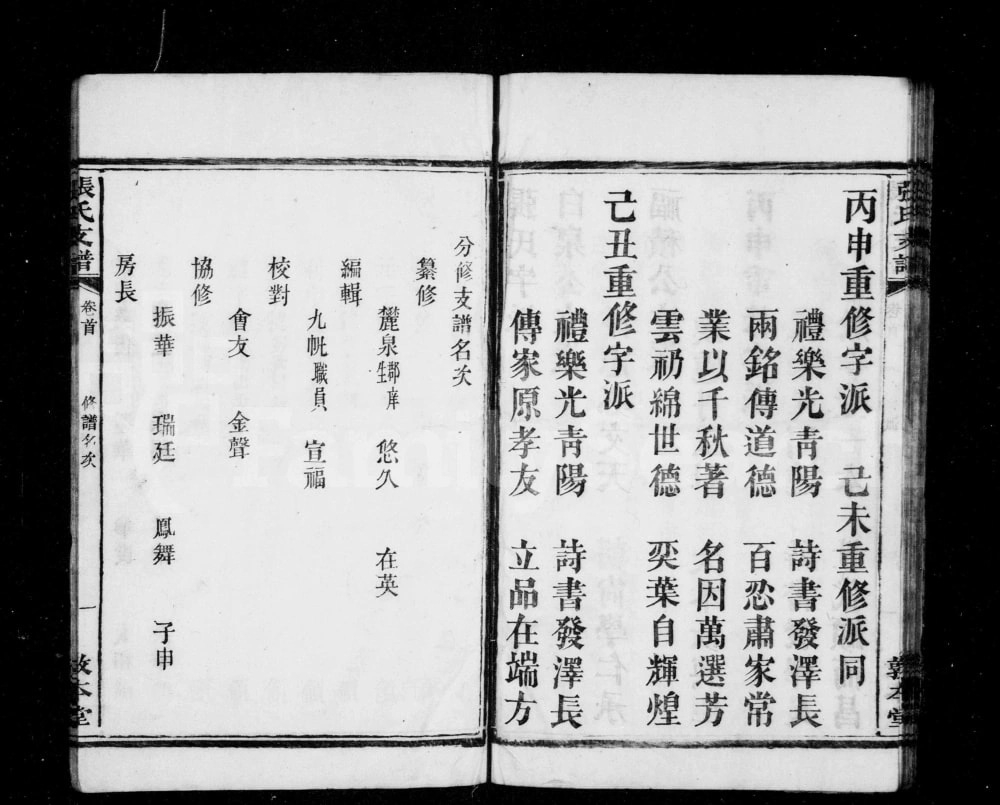 張氏支譜
敦本堂
丙申重修字派 己未重修派同
禮樂光青陽 詩書發澤長
兩銘傳道德 百忍肅家常
業以千秋著 名因萬選芳
雲礽綿世德 奕葉自輝煌
己丑重修字派
禮樂光青陽 詩書發澤長
傳家原孝友 立品在端方
分修支譜名次
纂修
麓泉郡庠生 悠久 在英
編輯
九㠶職員 宣福
校對
會友 金聲
協修
振華 瑞廷 鳳舞 子申
房長
張氏支譜 卷首 修譜名次 一 敦本堂